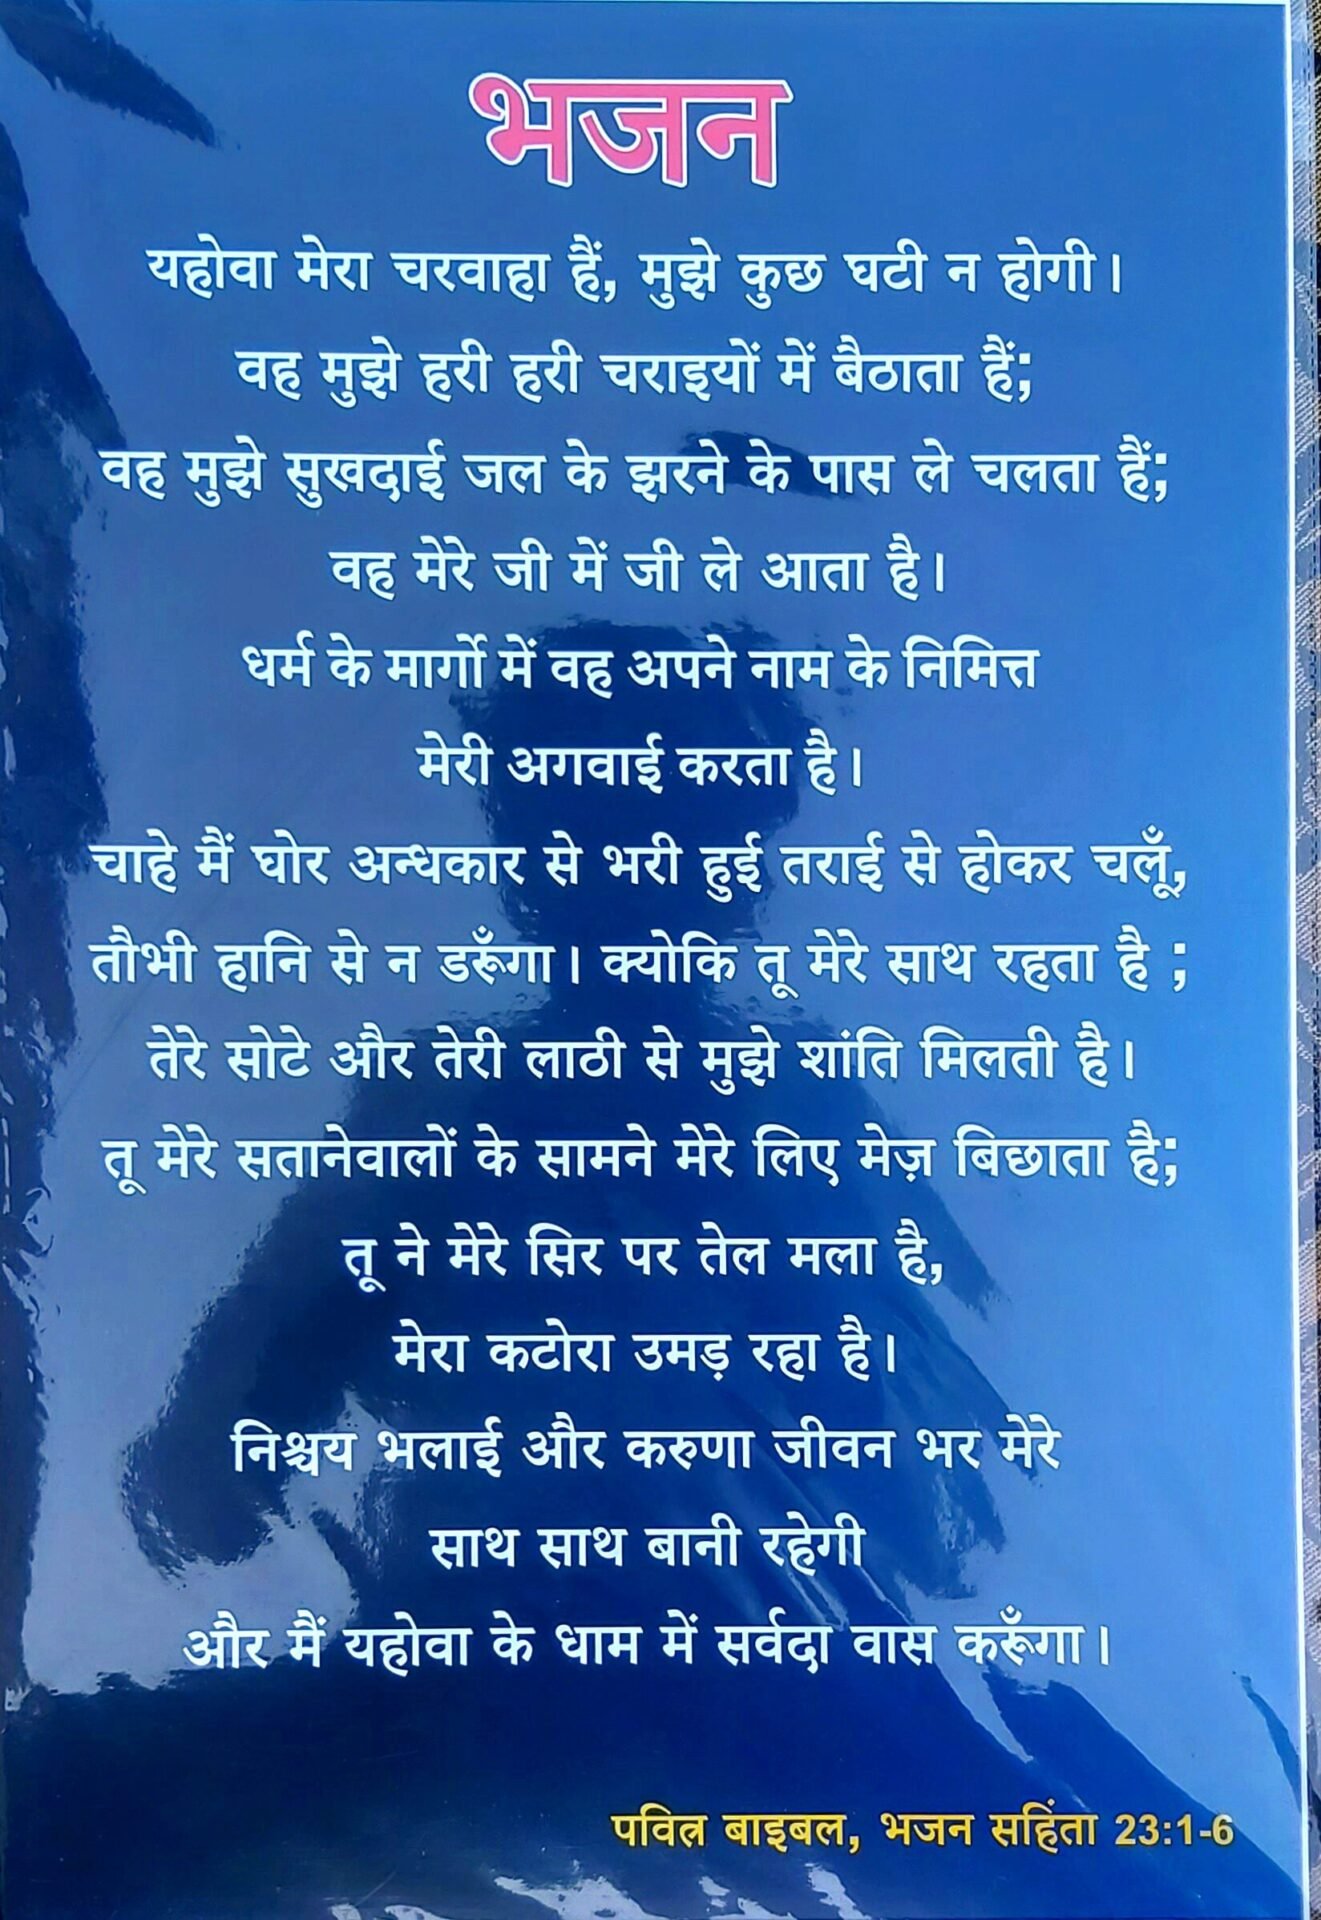 भजन
यहोवा मेरा चरवाहा हैं, मुझे कुछ घटी न होगी।
वह मुझे हरी हरी चराइयों में बैठाता हैं;
वह मुझे सुखदाई जल के झरने के पास ले चलता हैं;
वह मेरे जी में जी ले आता है।
धर्म के मार्गो में वह अपने नाम के निमित्त
मेरी अगवाई करता है।
चाहे मैं घोर अन्धकार से भरी हुई तराई से होकर चलूँ,
तौभी हानि से न डरूँगा। क्योकि तू मेरे साथ रहता है ;
तेरे सोटे और तेरी लाठी से मुझे शांति मिलती है।
तू मेरे सतानेवालों के सामने मेरे लिए मेज़ बिछाता है;
तू ने मेरे सिर पर तेल मला है,
मेरा कटोरा उमड़ रहा है।
निश्चय भलाई और करुणा जीवन भर मेरे
साथ साथ बानी रहेगी
और मैं यहोवा के धाम में सर्वदा वास करूँगा।
पवित्र बाइबल, भजन सहिंता 23:1-6